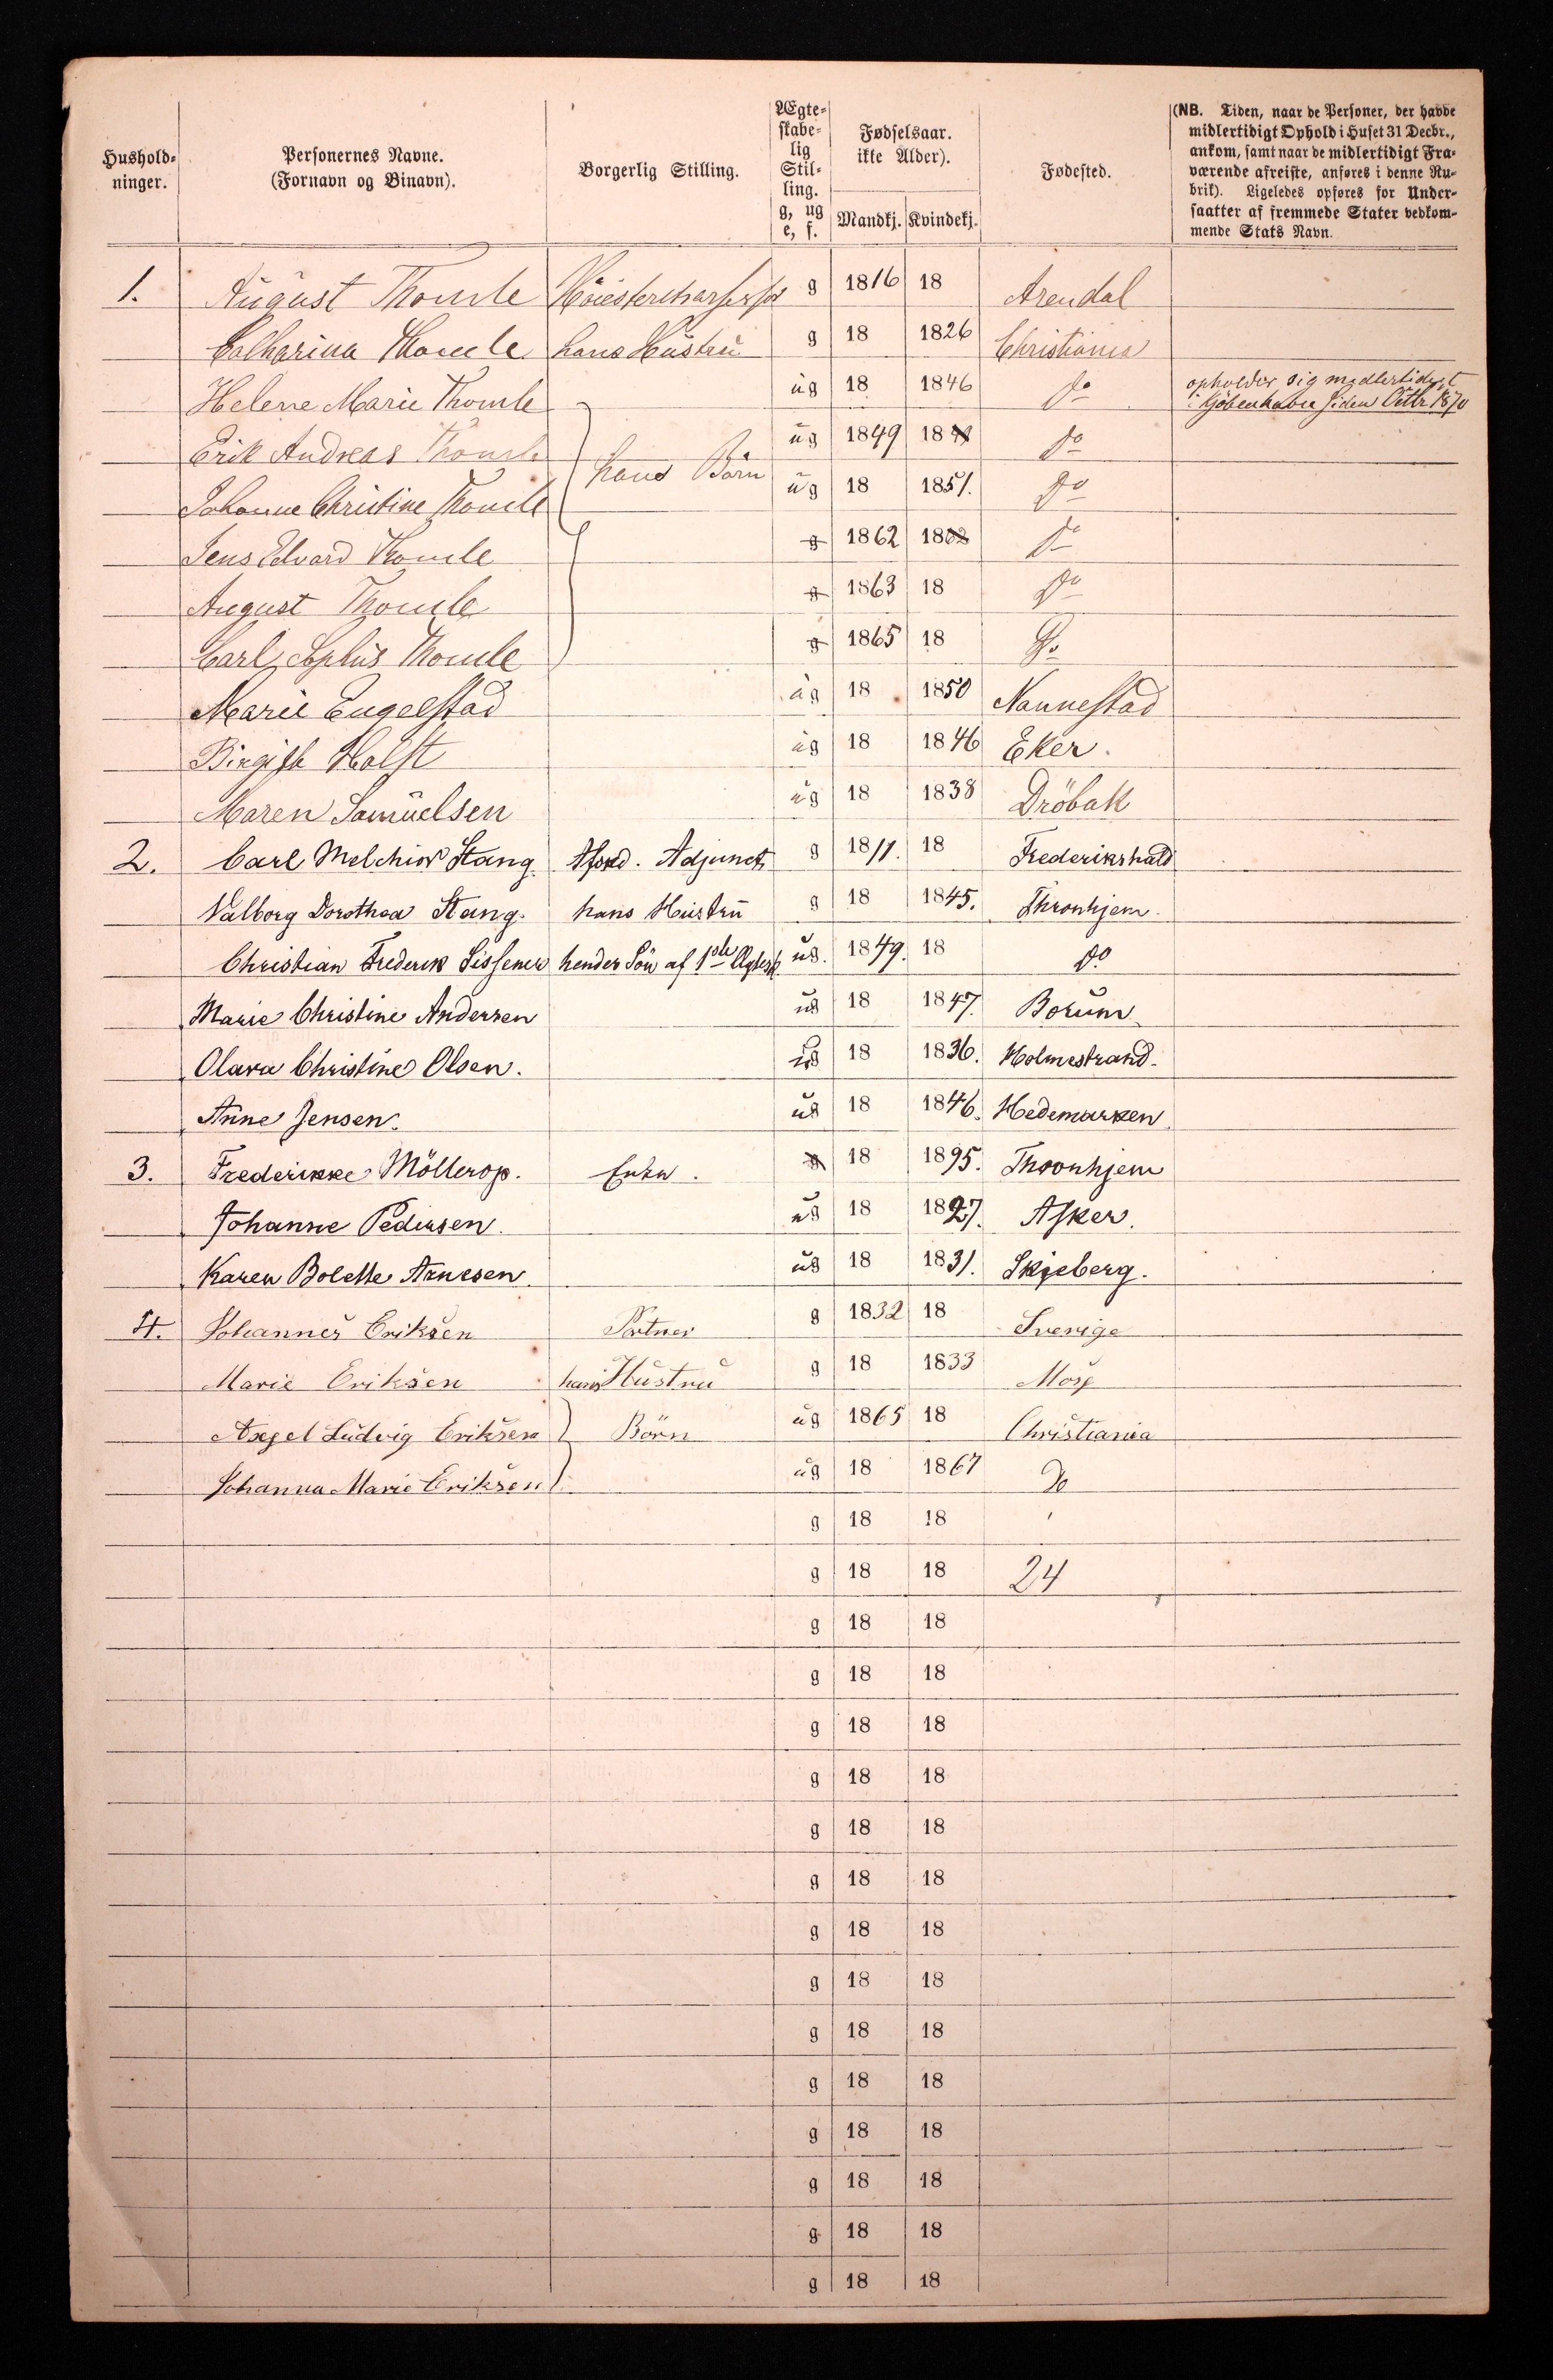 Hushold-
ninger.
Personernes Navne.
(Fornavn og Binavn).
Borgerlig Stilling.
Ægte-
skabe-
lig
Stil-
ling.
g, ug
e, f.
Fødselsaar.
ikke Alder).
Mandkj. Kvindekj.
Fødested.
(NB. Tiden, naar de Personer, der havde
midlertidigt Ophold i Huset 31 Decbr.,
ankom, samt naar de midlertidigt Fra-
værende afreiste, anføres i denne Ru-
brik). Ligeledes opføres for Under-
saatter af fremmede Stater vedkom-
mende Stats Navn.
1. August Thomle g 1816 18 Arendal
Catharina Thomle hans Hustru g 18 1826 Christiania
Helene Marie Thomle ug 18 1846 Do opholder sig midlertidigt
i Kjöbenhavn siden 1870
Erik Andreas Thomle ug 1849 18 Do
hans Börn
Johanne Christine Thomle ug 18 1851. Do
Jens Edvard Thomle g 1862 18 Do
August Thomle g 1863 18 Do
Carl Sophus Thomle g 1865 18 Do
Marie Engelstad ug 18 1850 Nannestad
Holst ug 18 1846 Eker.
Maren Samuelsen ug 18 1838 Dröbak
2. Carl Melchior Stang. Afskd. Adjunct g 1811. 18 Frederikshald
Valborg Dorothea Stang. hans Hustru g 18 1845. Thronhjem.
Christian Frederik Lissener hendes Sön af 1ste ug. 1849. 18 Do
Marie Christine Andersen ug 18 1847. Borum
Olava Christine Olsen. ug 18 1836. Holmestrand.
Anne Jensen. ug 18 1846. Hedemarken.
3. Frederikke Möllerop. Enke. g 18 1895. Thronhjem
Johanne Pedersen. ug 18 1827. Asker.
Karen Bolette Arnesen. ug 18 1831. Skjeberg.
4. Johannes Eriksen Portner g 1832 18 Sverige
Marie Eriksen hans Hustru g 18 1833 Moss
Axsel Ludvig Eriksen Börn ug 1865 18 Christiania
Johanna Marie Eriksen ug 18 1867 Do
g 18 18
g 18 18 24
g 18 18
g 18 18
g 18 18
g 18 18
g 18 18
g 18 18
g 18 18
g 18 18
g 18 18
g 18 18
g 18 18
g 18 18
g 18 18
g 18 18